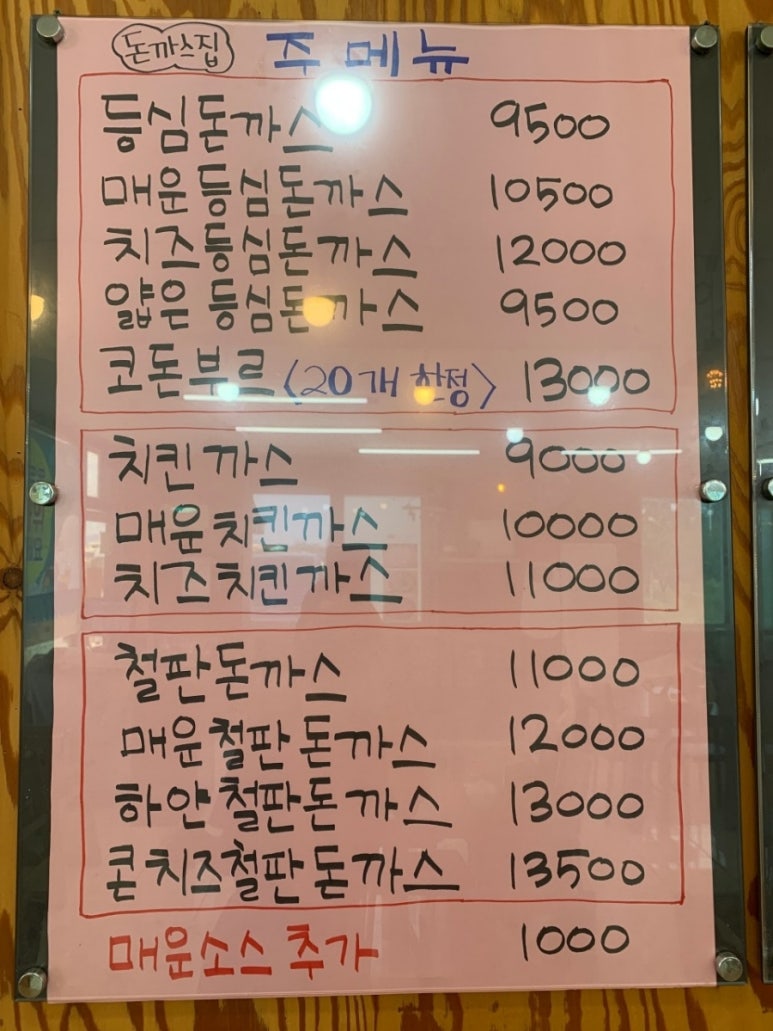 돈까스집 주 메뉴
등심돈까스 9500
매운등심돈까스 10500
치즈등심돈까스 12000
얇은 등심돈까스 9500
코돈부르 <20개 한정> 13000
치킨까스 9000
매운치킨까스 10000
치즈치킨까스 11000
철판돈까스 11000
매운철판돈까스 12000
하얀철판돈까스 13000
콘치즈철판돈까스 13500
매운소스 추가 1000